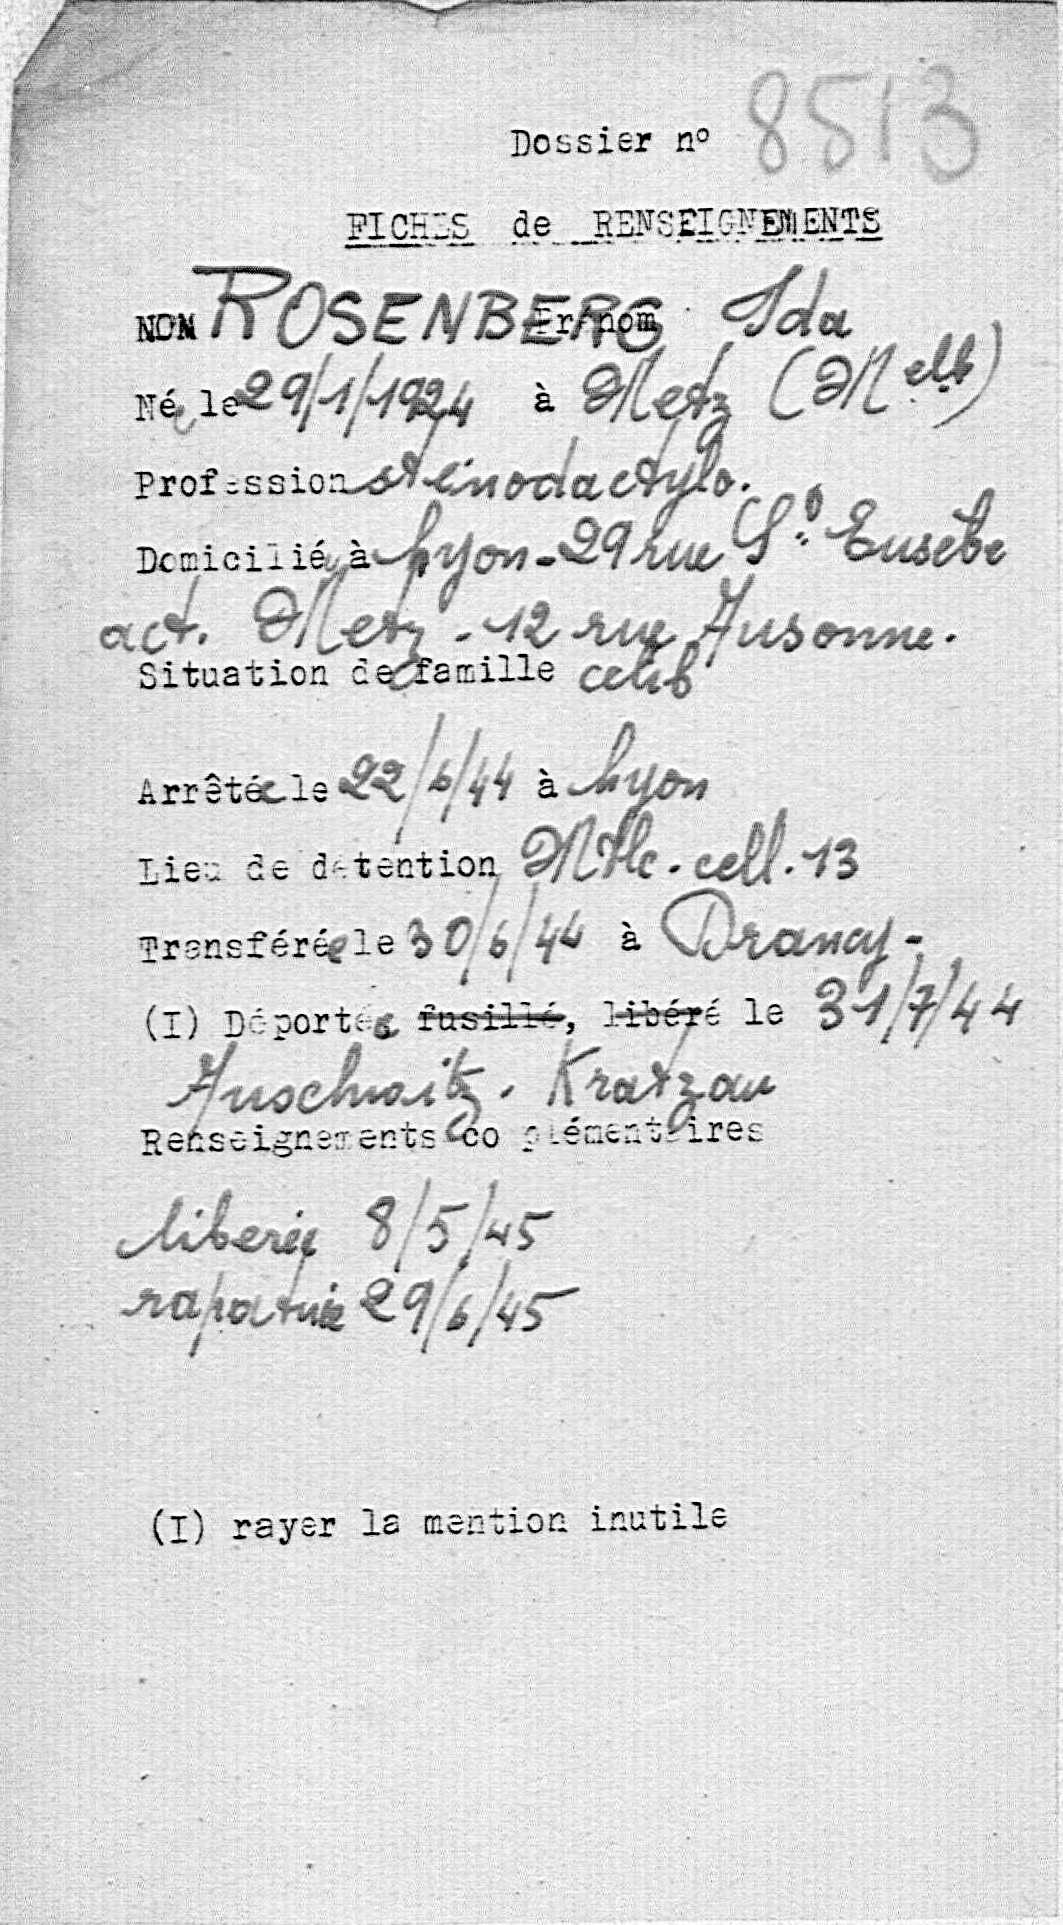 Dossier n° 8513
FICHES de RENSEIGNEMENTS
NOM ROSENBERG Prénom Ida
Née le 29/1/1924 à Metz (Melle)
Profession sténodactylo.
Domiciliée à Lyon - 29 rue St Eusèbe
act. Metz - 12 rue Ausonne.
Situation de famille celib
Arrêtée le 22/6/44 à Lyon
Lieu de détention Mtlc. cell. 13
Transférée le 30/6/44 à Drancy -
(I) Déportée fusillé, libéré le 31/7/44
Auschwitz. Kratzau
Renseignements complémentaires
liberée 8/5/45
rapatriée 29/6/45
(I) rayer la mention inutile